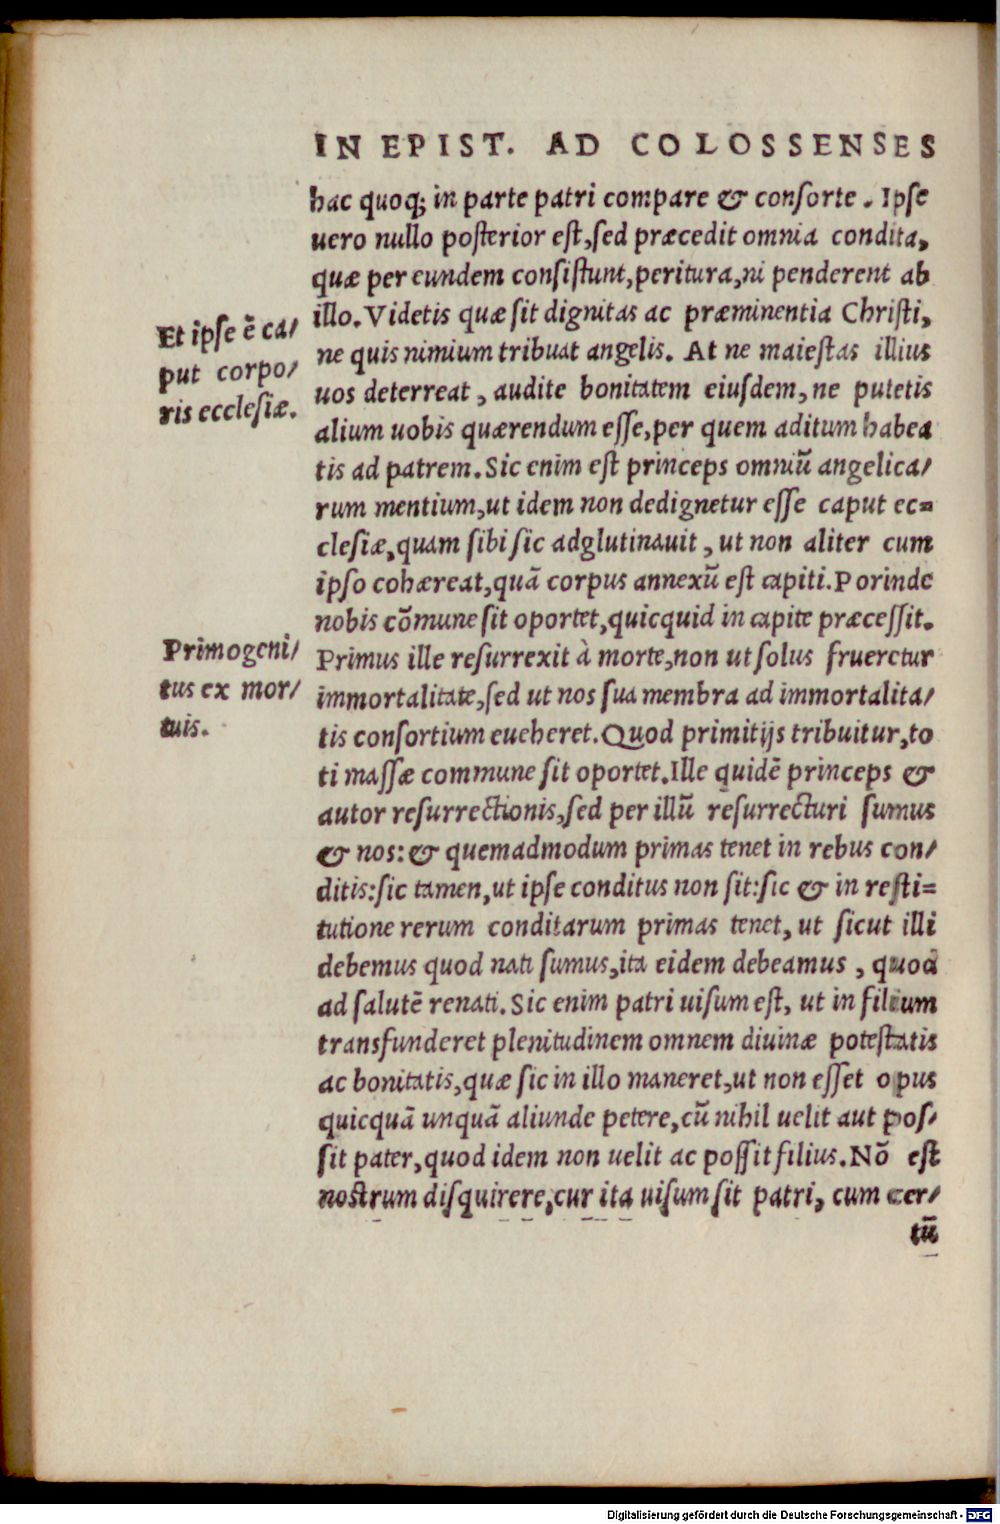 IN EPIST. AD COLOSSENSES
hac quoq; in parte patri compare & consorte. Ipse
uero nullo posterior est, sed præcedit omnia condita,
quæ per eundem consistunt, peritura, ni penderent ab
illo. Videtis quæ sit dignitas ac præminentia Christi,
ne quis nimium tribuat angelis. At ne maiestas illius
uos deterreat, audite bonitatem eiusdem, ne putetis
alium uobis quærendum esse, per quem aditum habea
tis ad patrem. Sic enim est princeps omniũ angelica/
rum mentium, ut idem non dedignetur esse caput ec=
clesiæ, quam sibi sic adglutinauit, ut non aliter cum
ipso cohæreat, quã corpus annexũ est capiti. Porinde
nobis cõmune sit oportet, quicquid in capite præcessit.
Primus ille resurrexit à morte, non ut solus frueretur
immortalitate, sed ut nos sua membra ad immortalita/
tis consortium eueheret. Quod primitijs tribuitur, to
ti massæ commune sit oportet. Ille quidẽ princeps &
autor resurrectionis, sed per illũ resurrecturi sumus
& nos: & quemadmodum primas tenet in rebus con/
ditis: sic tamen, ut ipse conditus non sit: sic & in resti=
tutione rerum conditarum primas tenet, ut sicut illi
debemus quod nati sumus, ita eidem debeamus, quod
ad salutẽ renati. Sic enim patri uisum est, ut in filium
transfunderet plenitudinem omnem diuinæ potestatis
ac bonitatis, quæ sic in illo maneret, ut non esset opus
quicquã unquã aliunde petere, cũ nihil uelit aut pos/
sit pater, quod idem non uelit ac possit filius. Nõ est
nostrum disquirere, cur ita uisum sit patri, cum cer/
tũ
Et ipse ẽ ca/
put corpo/
ris ecclesiæ.
Primogeni/
tus ex mor/
tuis.
Digitalisierung gefördert durch die Deutsche Forschungsgemeinschaft - DFG